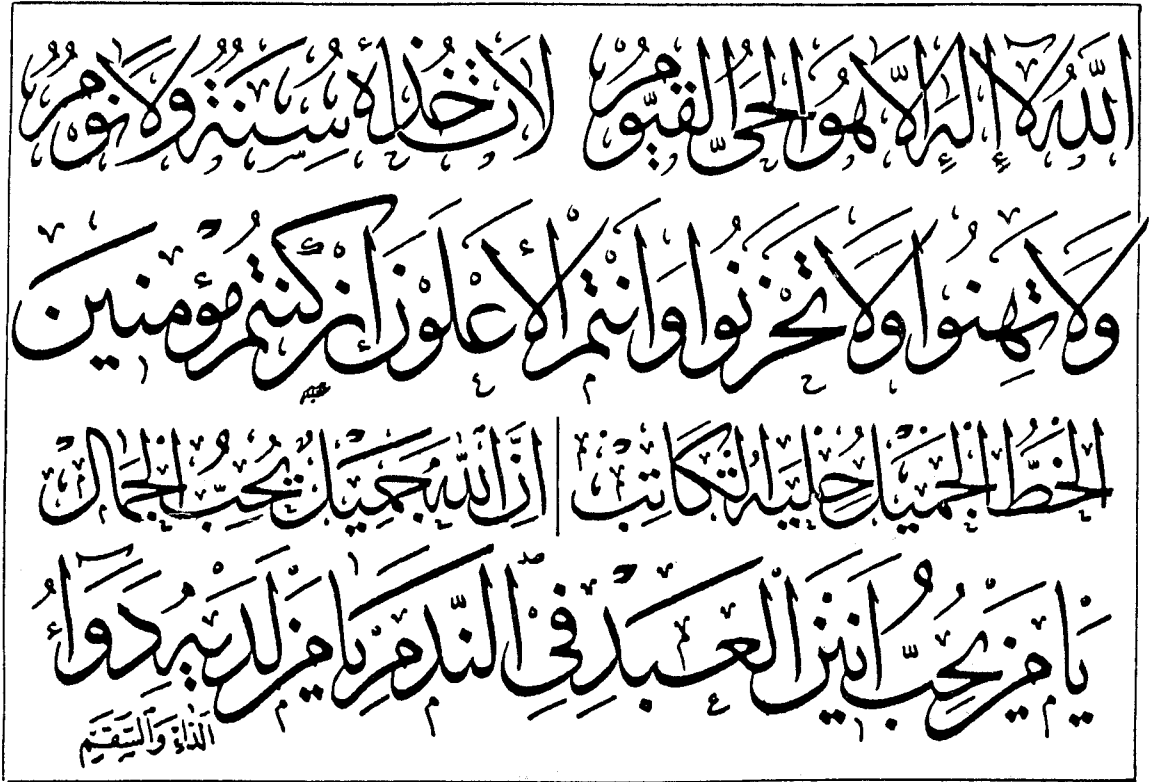 اللَّهُ لَا إِلَهَ إِلَّا هُوَ الْحَيُّ الْقَيُّومُ لَا تَأْخُذُهُ سِنَةٌ وَلَا نَوْمٌ
وَلَا تَهِنُوا وَلَا تَحْزَنُوا وَأَنْتُمُ الْأَعْلَوْنَ إِنْ كُنْتُمْ مُؤْمِنِينَ
الْخَطُّ الْجَمِيلُ حِلْيَةُ الْكَاتِبِ إِنَّ اللَّهَ جَمِيلٌ يُحِبُّ الْجَمَالَ
يَا مَنْ يُحِبُّ أَنِينَ الْعَبْدِ فِي النَّدَمِ يَا مَنْ لَدَيْهِ دَوَاءُ
الدَّاءِ وَالسَّقَمِ